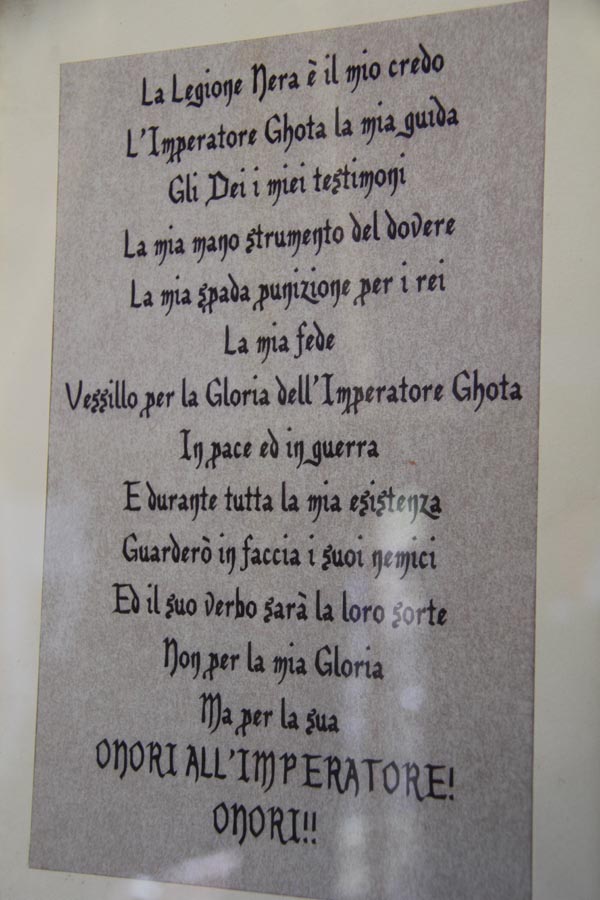 La Legione Nera è il mio credo
L'Imperatore Ghota la mia guida
Gli Dei i miei testimoni
La mia mano strumento del dovere
La mia spada punizione per i rei
La mia fede
Vessillo per la Gloria dell'Imperatore Ghota
In pace ed in guerra
E durante tutta la mia esistenza
Guarderò in faccia i suoi nemici
Ed il suo verbo sarà la loro sorte
Non per la mia Gloria
Ma per la sua
ONORI ALL'IMPERATORE!
ONORI!!